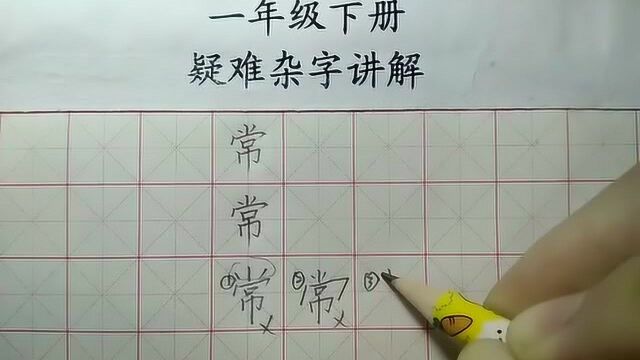 一年级下册
疑难杂字讲解
常
常
①常× ②常× ③